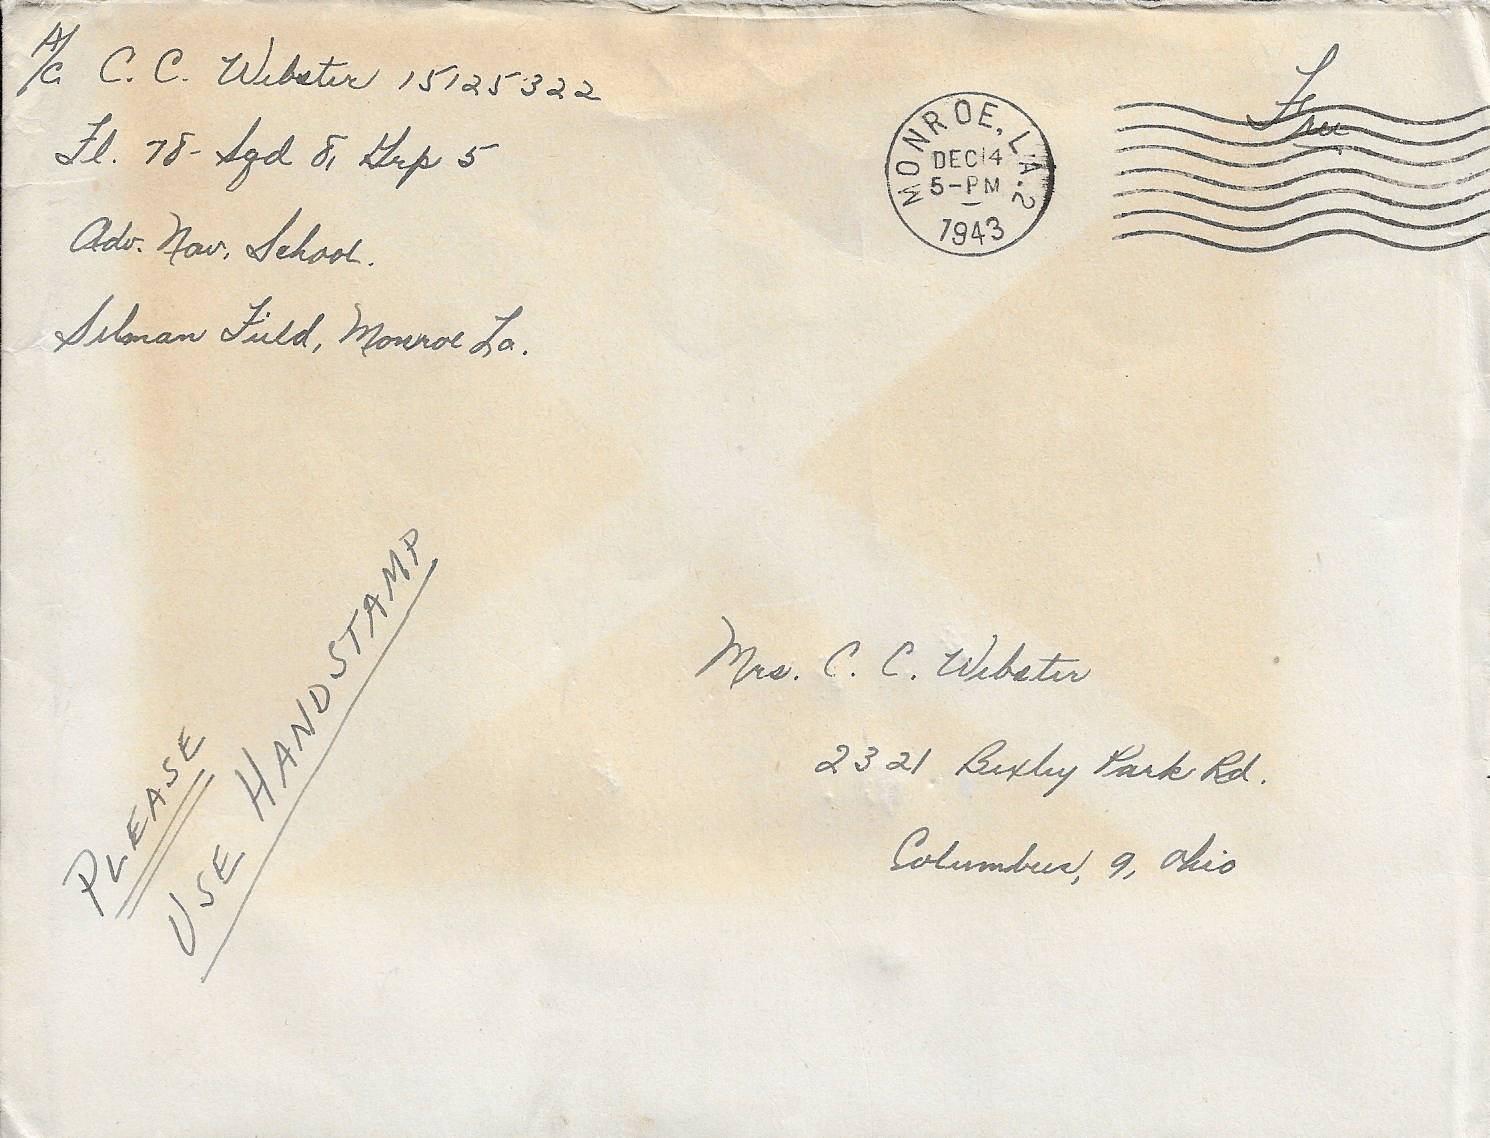 A/C C. C. Webster 15125322
Fl. 78- Sqd 8, Grp 5
Adv. Nav. School.
Selman Field, Monroe La.
MONROE, LA. 2
DEC 14
5-PM
1943
Free
PLEASE
USE HANDSTAMP
Mrs. C. C. Webster
2321 Bexley Park Rd.
Columbus, 9, Ohio